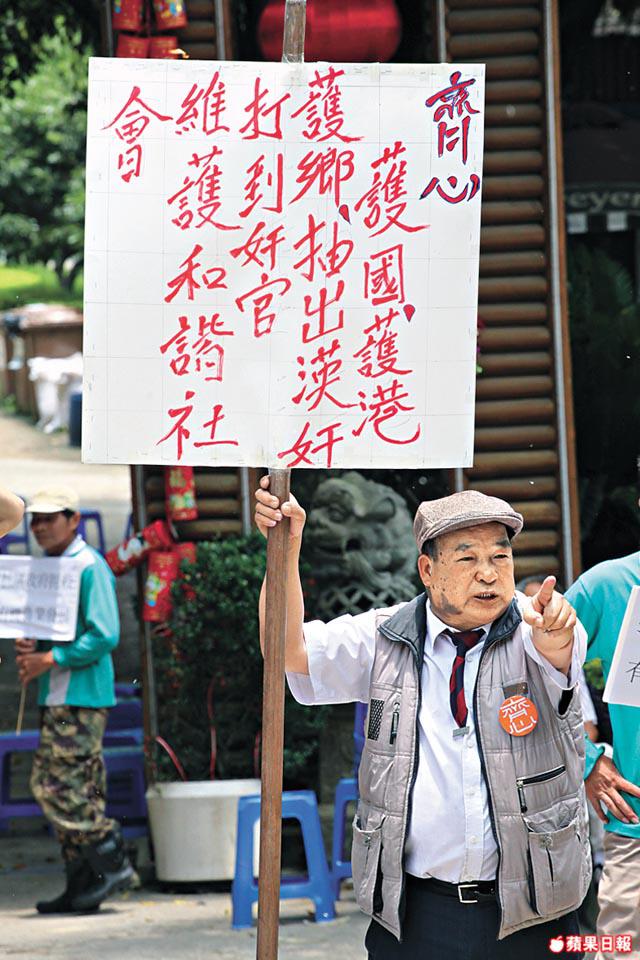 齊心
護國,護港
護鄉,抽出漢奸
打到奸官
維護和諧社
會
齊心
有
eyer
蘋果日報